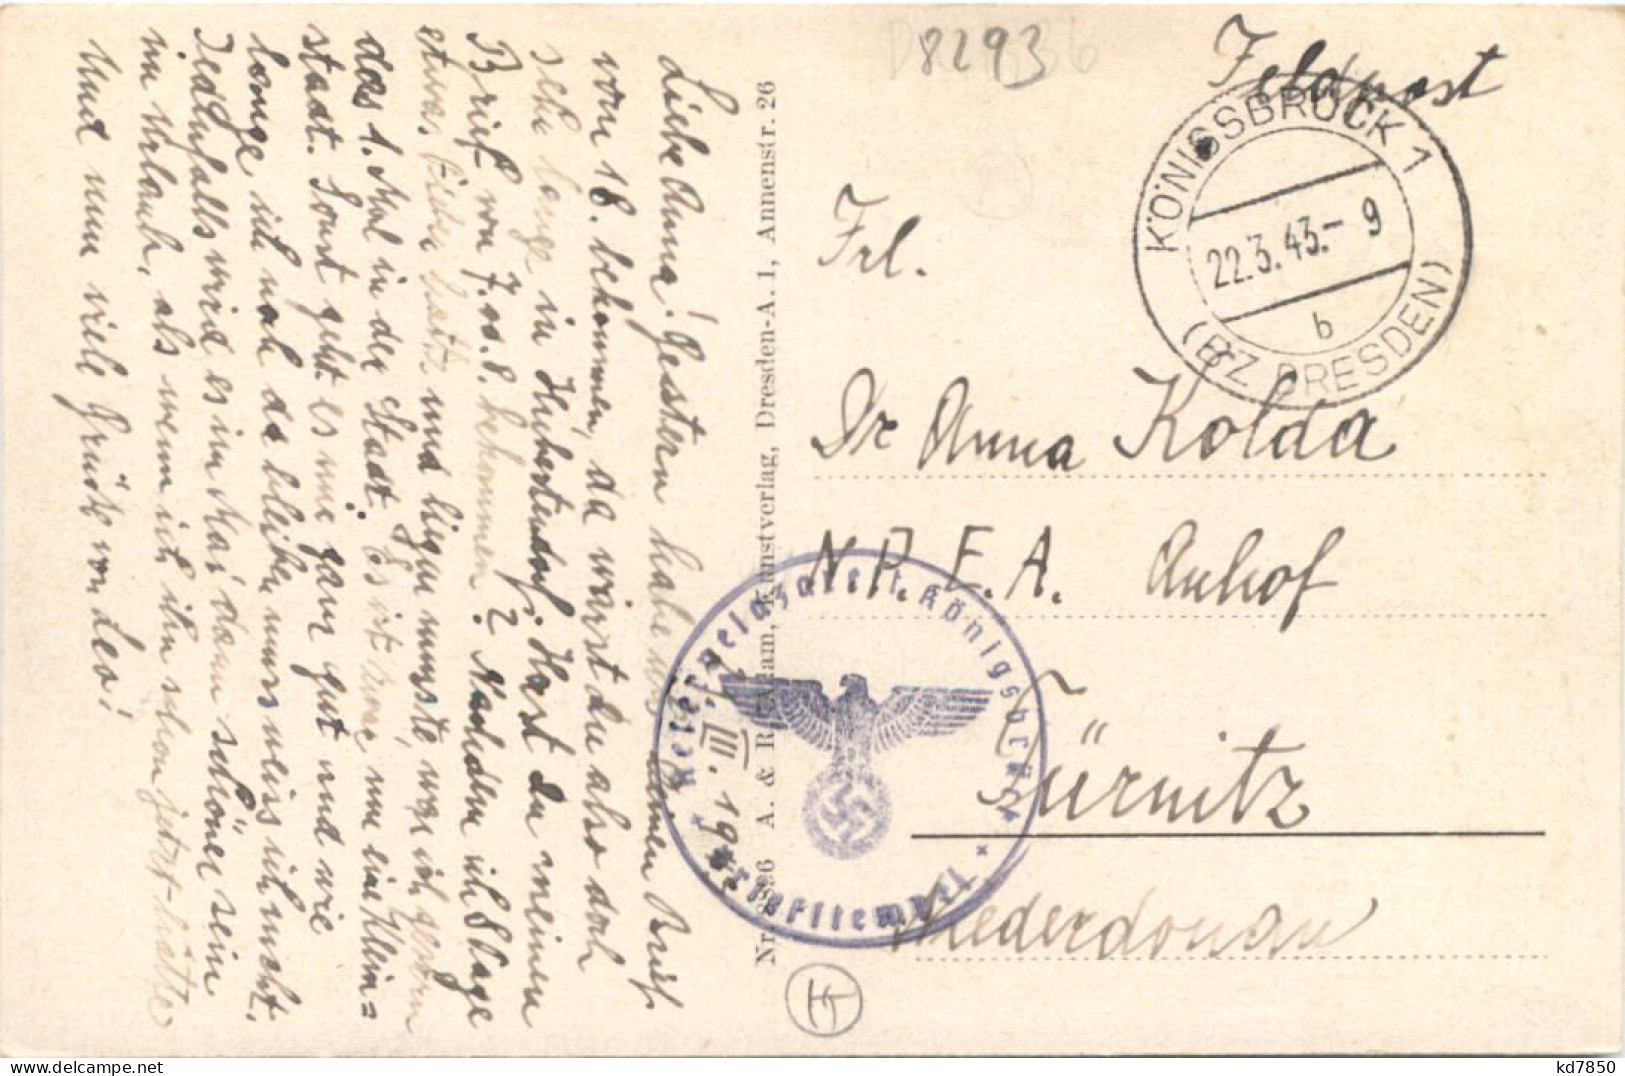 D 82936
Feldpost
KÖNIGSBRÜCK 1
22.3.43.- 9
b
(BZ DRESDEN)
Frl.
Dr Anna Kolda
N.P.E.A. Anhof
Türnitz
Niederdonau
Reservelazarett Königsbrück
Briefstempel
Nr. A. & R. Adam, Kunstverlag, Dresden-A. 1, Annenstr. 26
Liebe Anna! Gestern habe ich deinen Brief
vom 18. bekommen, da warst du also doch
sehr lange in Hubertendorf. Hast du meinen
Brief von 7. od. 8. bekommen? Nachdem ich 8 Tage
etwas Fieber hatte und liegen musste, war ich gestern
das 1. Mal in der Stadt. Es ist zwar nur eine Klein=
stadt. Sonst geht es mir ganz gut und wie
lange ich noch da bleiben muss weiss ich nicht.
Jedenfalls wird es im Mai dann schöner sein
im Urlaub, als wenn ich ihn schon jetzt hätte
Und nun viele Grüße von Leo!
kd7850